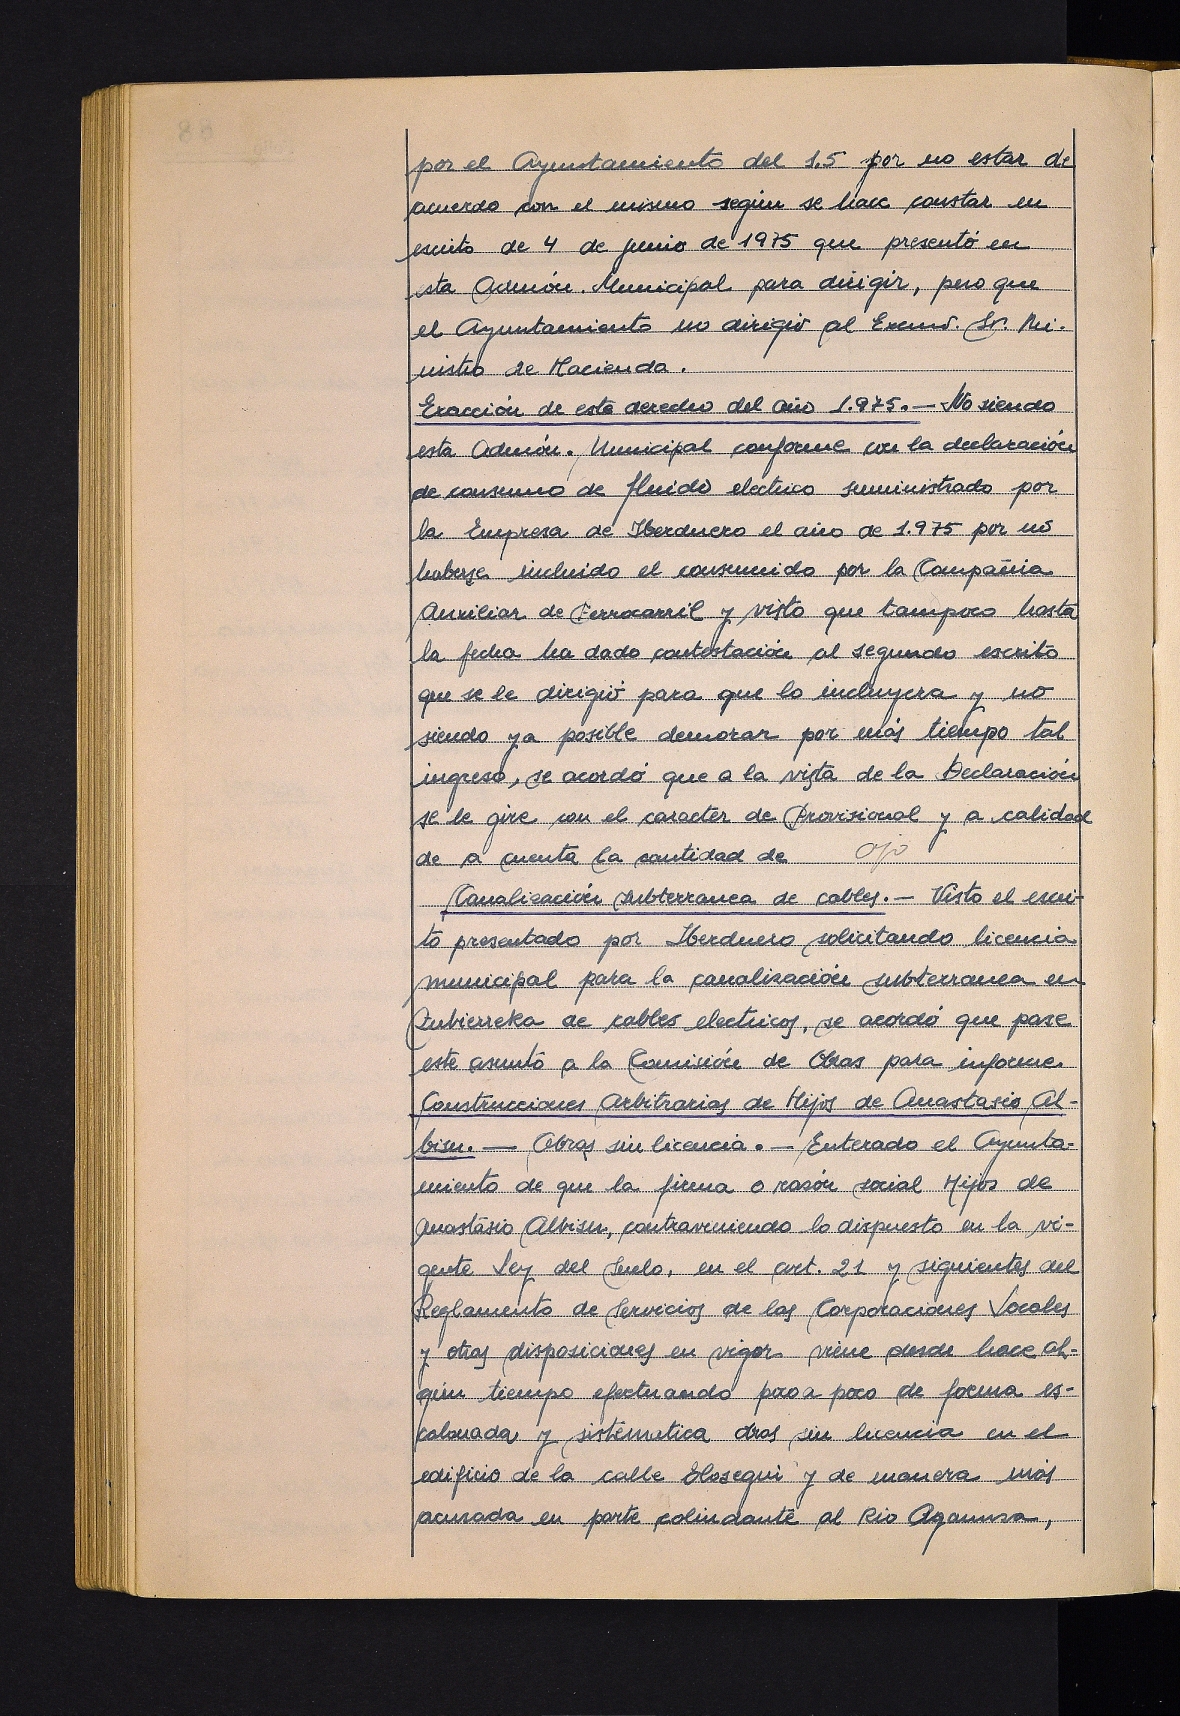 por el Ayuntamiento del 1,5 por no estar de
acuerdo con el mismo según se hace constar en
escrito de 4 de junio de 1975 que presentó en
esta Admón. Municipal para dirigir, pero que
el Ayuntamiento no dirigió al Excmo. Sr. Mi-
nistro de Hacienda.
Exacción de este derecho del año 1.975.— No siendo
esta Admón. Municipal conforme con la declaración
de consumo de fluido electrico suministrado por
la Empresa de Iberduero el año de 1.975 por no
haberse incluido el consumido por la Compañia
Auxiliar de Ferrocarril y visto que tampoco hasta
la fecha ha dado contestación al segundo escrito
que se le dirigió para que lo incluyera y no
siendo ya posible demorar por más tiempo tal
ingreso, se acordó que a la vista de la Declaración
se le gire con el caracter de Provisional y a calidad
de a cuenta la cantidad de ojo
Canalización subterranea de cables.— Visto el escri-
to presentado por Iberduero solicitando licencia
municipal para la canalización subterranea en
Zubierreka de cables electricos, se acordó que pase
este asunto a la Comisión de Obras para informe.
Construcciones arbitrarias de Hijos de Anastasio Al-
bisu.— Obras sin licencia.— Enterado el Ayunta-
miento de que la firma o razón social Hijos de
Anastasio Albisu, contraviniendo lo dispuesto en la vi-
gente Ley del Suelo, en el art. 21 y siguientes del
Reglamento de Servicios de las Corporaciones Locales
y otras disposiciones en vigor viene desde hace al-
gún tiempo efectuando poco a poco de forma es-
calonada y sistematica obras sin licencia en el
edificio de la calle Elosegui y de manera más
acusada en parte colindante al Rio Agaunza,